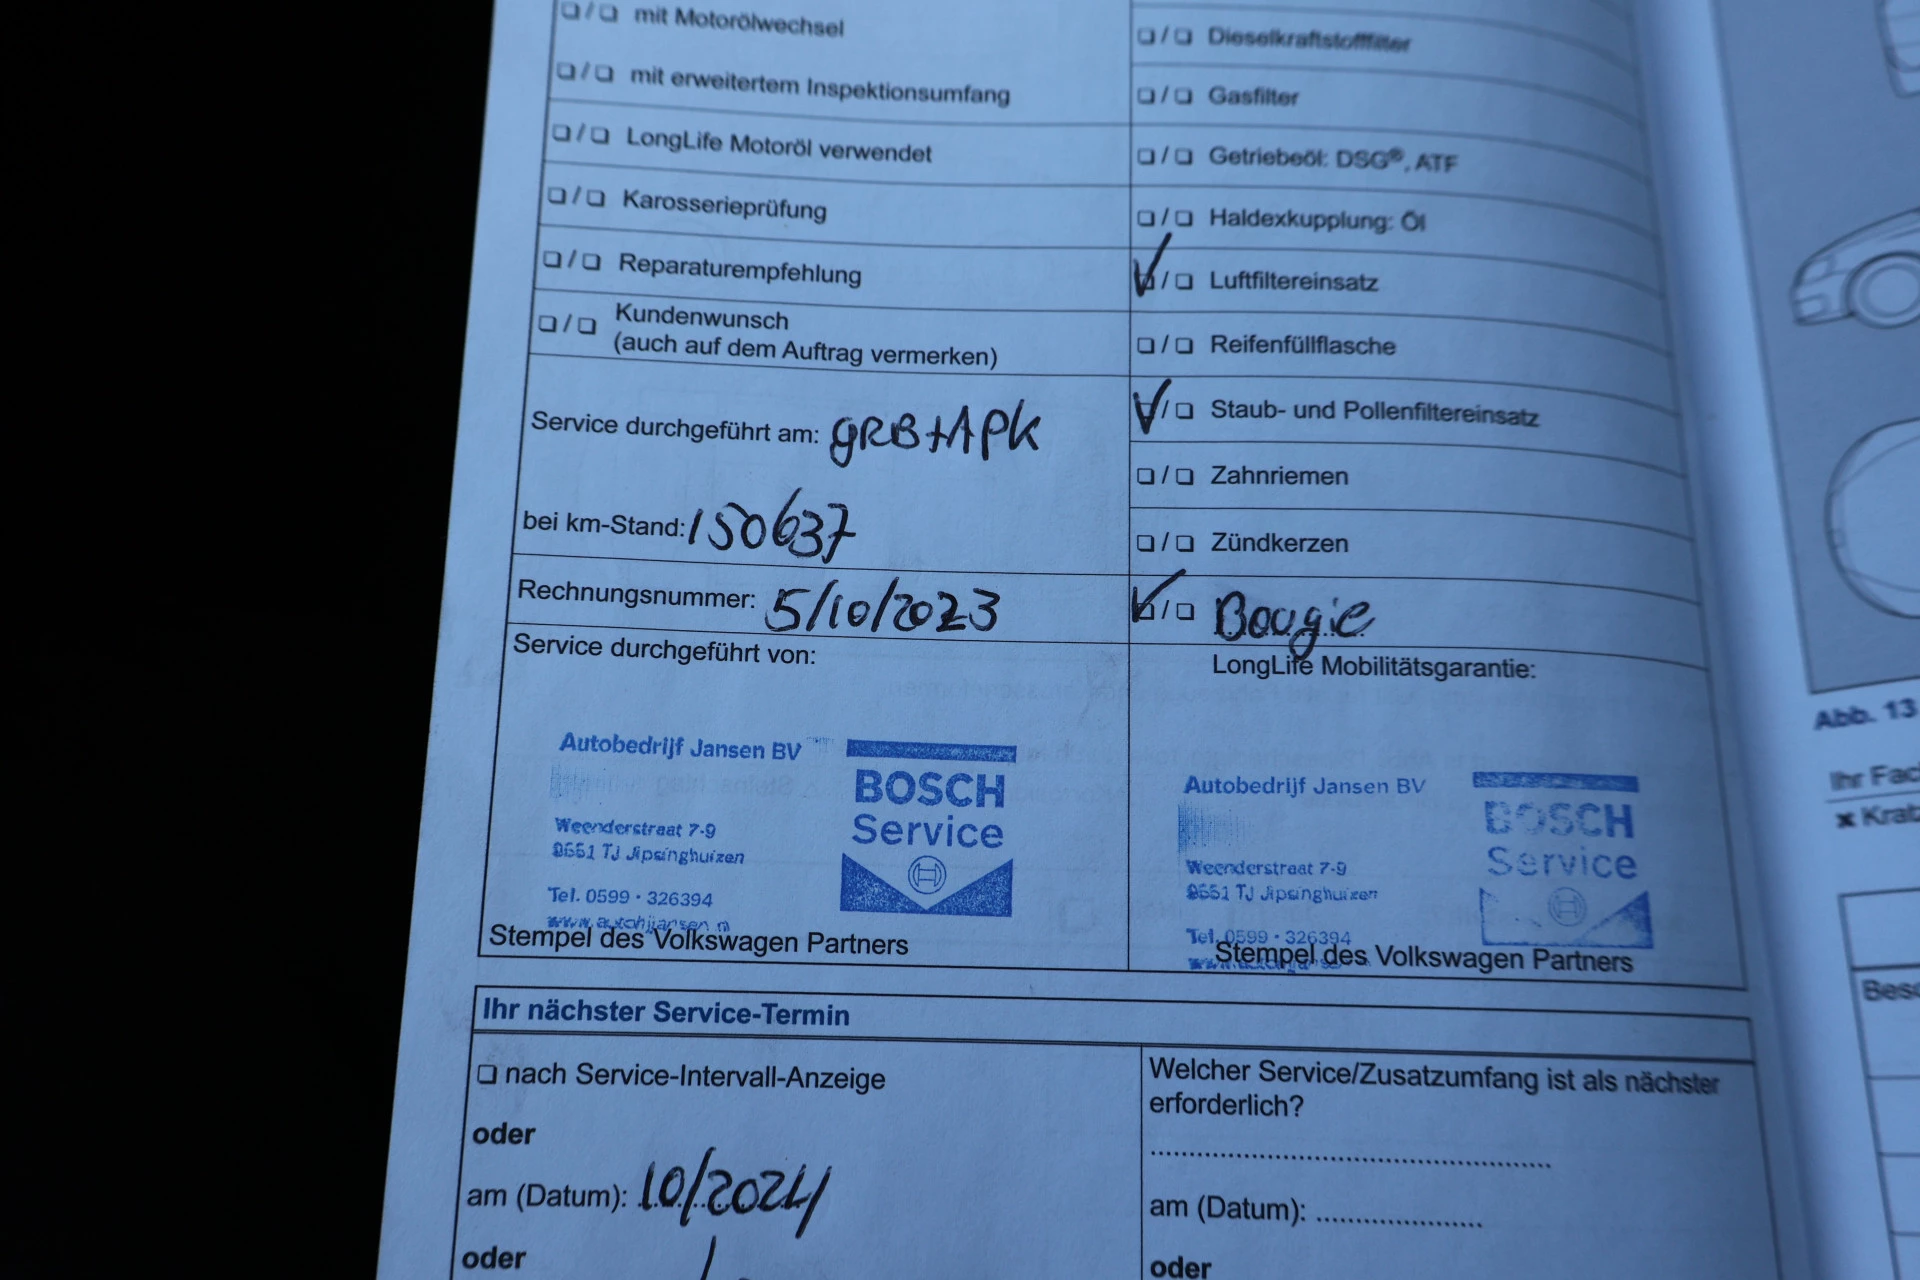 ❏ / ❏ mit Motorölwechsel
❏ / ❏ mit erweitertem Inspektionsumfang
❏ / ❏ LongLife Motoröl verwendet
❏ / ❏ Karosserieprüfung
❏ / ❏ Reparaturempfehlung
❏ / ❏ Kundenwunsch
(auch auf dem Auftrag vermerken)
Service durchgeführt am: GRB+APK
bei km-Stand: 150637
Rechnungsnummer: 5/10/2023
Service durchgeführt von:
Autobedrijf Jansen BV
Weenderstraat 7-9
9551 TJ Jipsinghuizen
Tel. 0599 · 326394
BOSCH
Service
Stempel des Volkswagen Partners
❏ / ❏ Dieselkraftstofffilter
❏ / ❏ Gasfilter
❏ / ❏ Getriebeöl: DSG®, ATF
❏ / ❏ Haldexkupplung: Öl
✓ / ❏ Luftfiltereinsatz
❏ / ❏ Reifenfüllflasche
✓ / ❏ Staub- und Pollenfiltereinsatz
❏ / ❏ Zahnriemen
❏ / ❏ Zündkerzen
✓ / ❏ Bougie
LongLife Mobilitätsgarantie:
Autobedrijf Jansen BV
Weenderstraat 7-9
9551 TJ Jipsinghuizen
Tel. 0599 · 326394
BOSCH
Service
Stempel des Volkswagen Partners
Ihr nächster Service-Termin
❏ nach Service-Intervall-Anzeige
oder
am (Datum): 10/2024
oder
Welcher Service/Zusatzumfang ist als nächster
erforderlich?
am (Datum):
oder
Abb. 13
Ihr Fac
✖ Krat
Besc